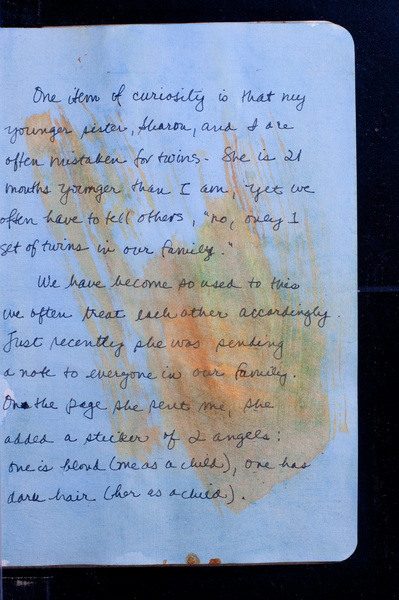 One item of curiosity is that my
younger sister, Sharon, and I are
often mistaken for twins. She is 21
months younger than I am, yet we
often have to tell others, "no, only 1
set of twins in our family."
We have become so used to this
we often treat each other accordingly.
Just recently she was sending
a note to everyone in our family.
On the page she sent me, she
added a sticker of 2 angels:
one is blond (me as a child), one has
dark hair (her as a child).